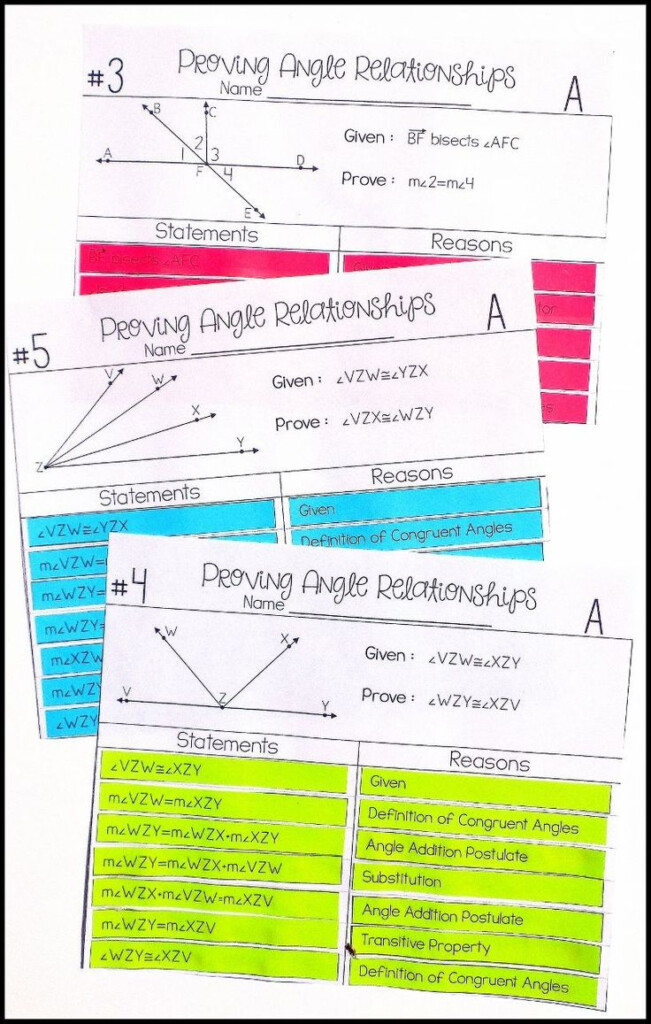 #3
Proving Angle Relationships
A
Name
B
C
A
2
1
3
D
F
4
E
Given : BF bisects ∠AFC
Prove : m∠2=m∠4
Statements
Reasons
BF bisects ∠AFC
#5
Proving Angle Relationships
A
Name
V
W
X
Y
Z
Given : ∠VZW≅∠YZX
Prove : ∠VZX≅∠WZY
Statements
Reasons
∠VZW≅∠YZX
Given
m∠VZW=
Definition of Congruent Angles
m∠WZY=
m∠WZY=
m∠XZW
m∠WZY
∠WZY
#4
Proving Angle Relationships
A
Name
W
X
V
Z
Y
Given : ∠VZW≅∠XZY
Prove : ∠WZY≅∠XZV
Statements
Reasons
∠VZW≅∠XZY
Given
m∠VZW=m∠XZY
Definition of Congruent Angles
m∠WZY=m∠WZX+m∠XZY
Angle Addition Postulate
m∠WZY=m∠WZX+m∠VZW
Substitution
m∠WZX+m∠VZW=m∠XZV
Angle Addition Postulate
m∠WZY=m∠XZV
Transitive Property
∠WZY≅∠XZV
Definition of Congruent Angles